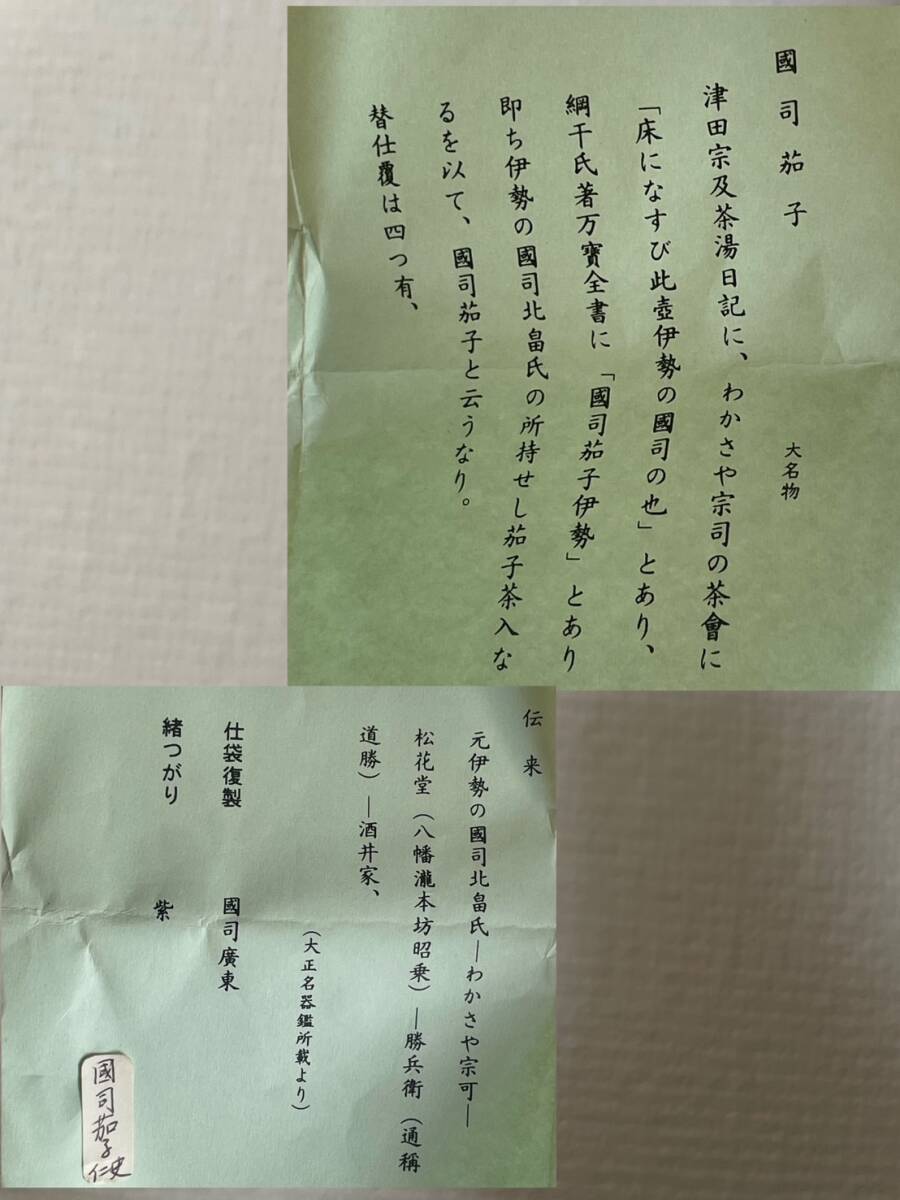 國司茄子
大名物
津田宗及茶湯日記に、わかさや宗司の茶會に
「床になすび此壺伊勢の國司の也」とあり、
綱干氏著万寳全書に「國司茄子伊勢」とあり
即ち伊勢の國司北畠氏の所持せし茄子茶入な
るを以て、國司茄子と云うなり。
替仕覆は四つ有、
伝来
元伊勢の國司北畠氏―わかさや宗可―
松花堂（八幡瀧本坊昭乗）―勝兵衛（通稱
道勝）―酒井家、
（大正名器鑑所載より）
仕袋復製　國司廣東
緒つがり　紫
國司茄子
仁史